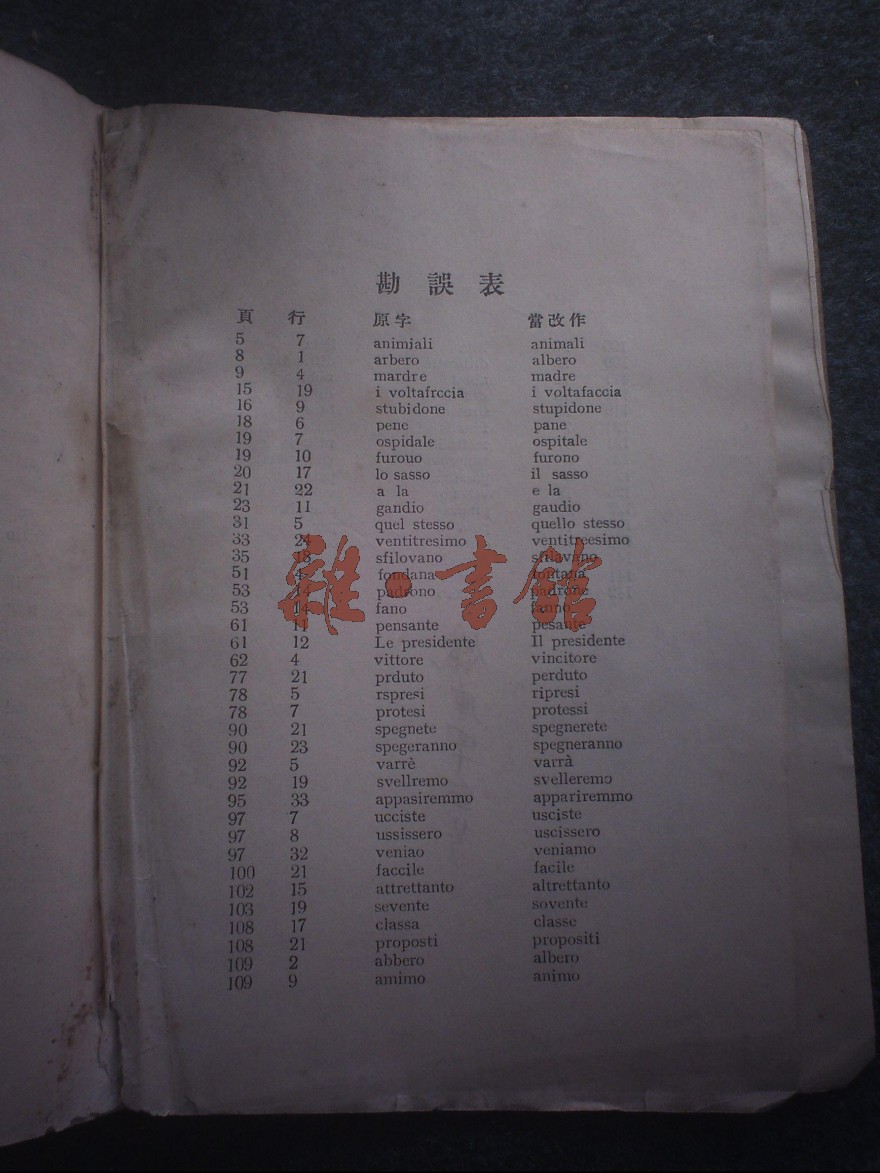 勘誤表
頁 行 原字 當改作
5 7 animjali animali
8 1 arbero albero
9 4 mardre madre
15 19 i voltafrccia i voltafaccia
16 9 stubidone stupidone
18 6 pene pane
19 7 ospidale ospitale
19 10 furouo furono
20 17 lo sasso il sasso
21 22 a la e la
23 11 gandio gaudio
31 5 quel stesso quello stesso
33 24 ventitresimo ventitreesimo
35 18 sfilovano sfilavano
51 4 fondana fontana
53 14 padrono padrone
53 14 fano fanno
61 11 pensante pesante
61 12 Le presidente Il presidente
62 4 vittore vincitore
77 21 prduto perduto
78 5 rspresi ripresi
78 7 protesi protessi
90 21 spegnete spegnerete
90 23 spegeranno spegneranno
92 5 varrè varrà
92 19 svellremo svelleremo
95 33 appasiremmo appariremmo
97 7 ucciste usciste
97 8 ussissero uscissero
97 32 veniao veniamo
100 21 faccile facile
102 15 attrettanto altrettanto
103 19 sevente sovente
108 17 classa classe
108 21 proposti propositi
109 2 abbero albero
109 9 amimo animo
雜·書館